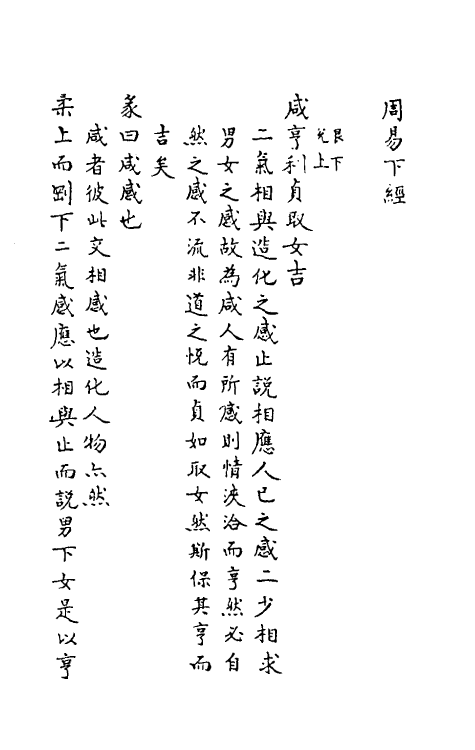 周易下經
艮下
兌上
咸亨利貞取女吉
二氣相與造化之感止說相應人己之感二少相求
男女之感故為咸人有所感則情浹洽而亨然必自
然之感不流非道之悅而貞如取女然斯保其亨而
吉矣
彖曰咸感也
咸者彼此交相感也造化人物亦然
柔上而剛下二氣感應以相與止而說男下女是以亨